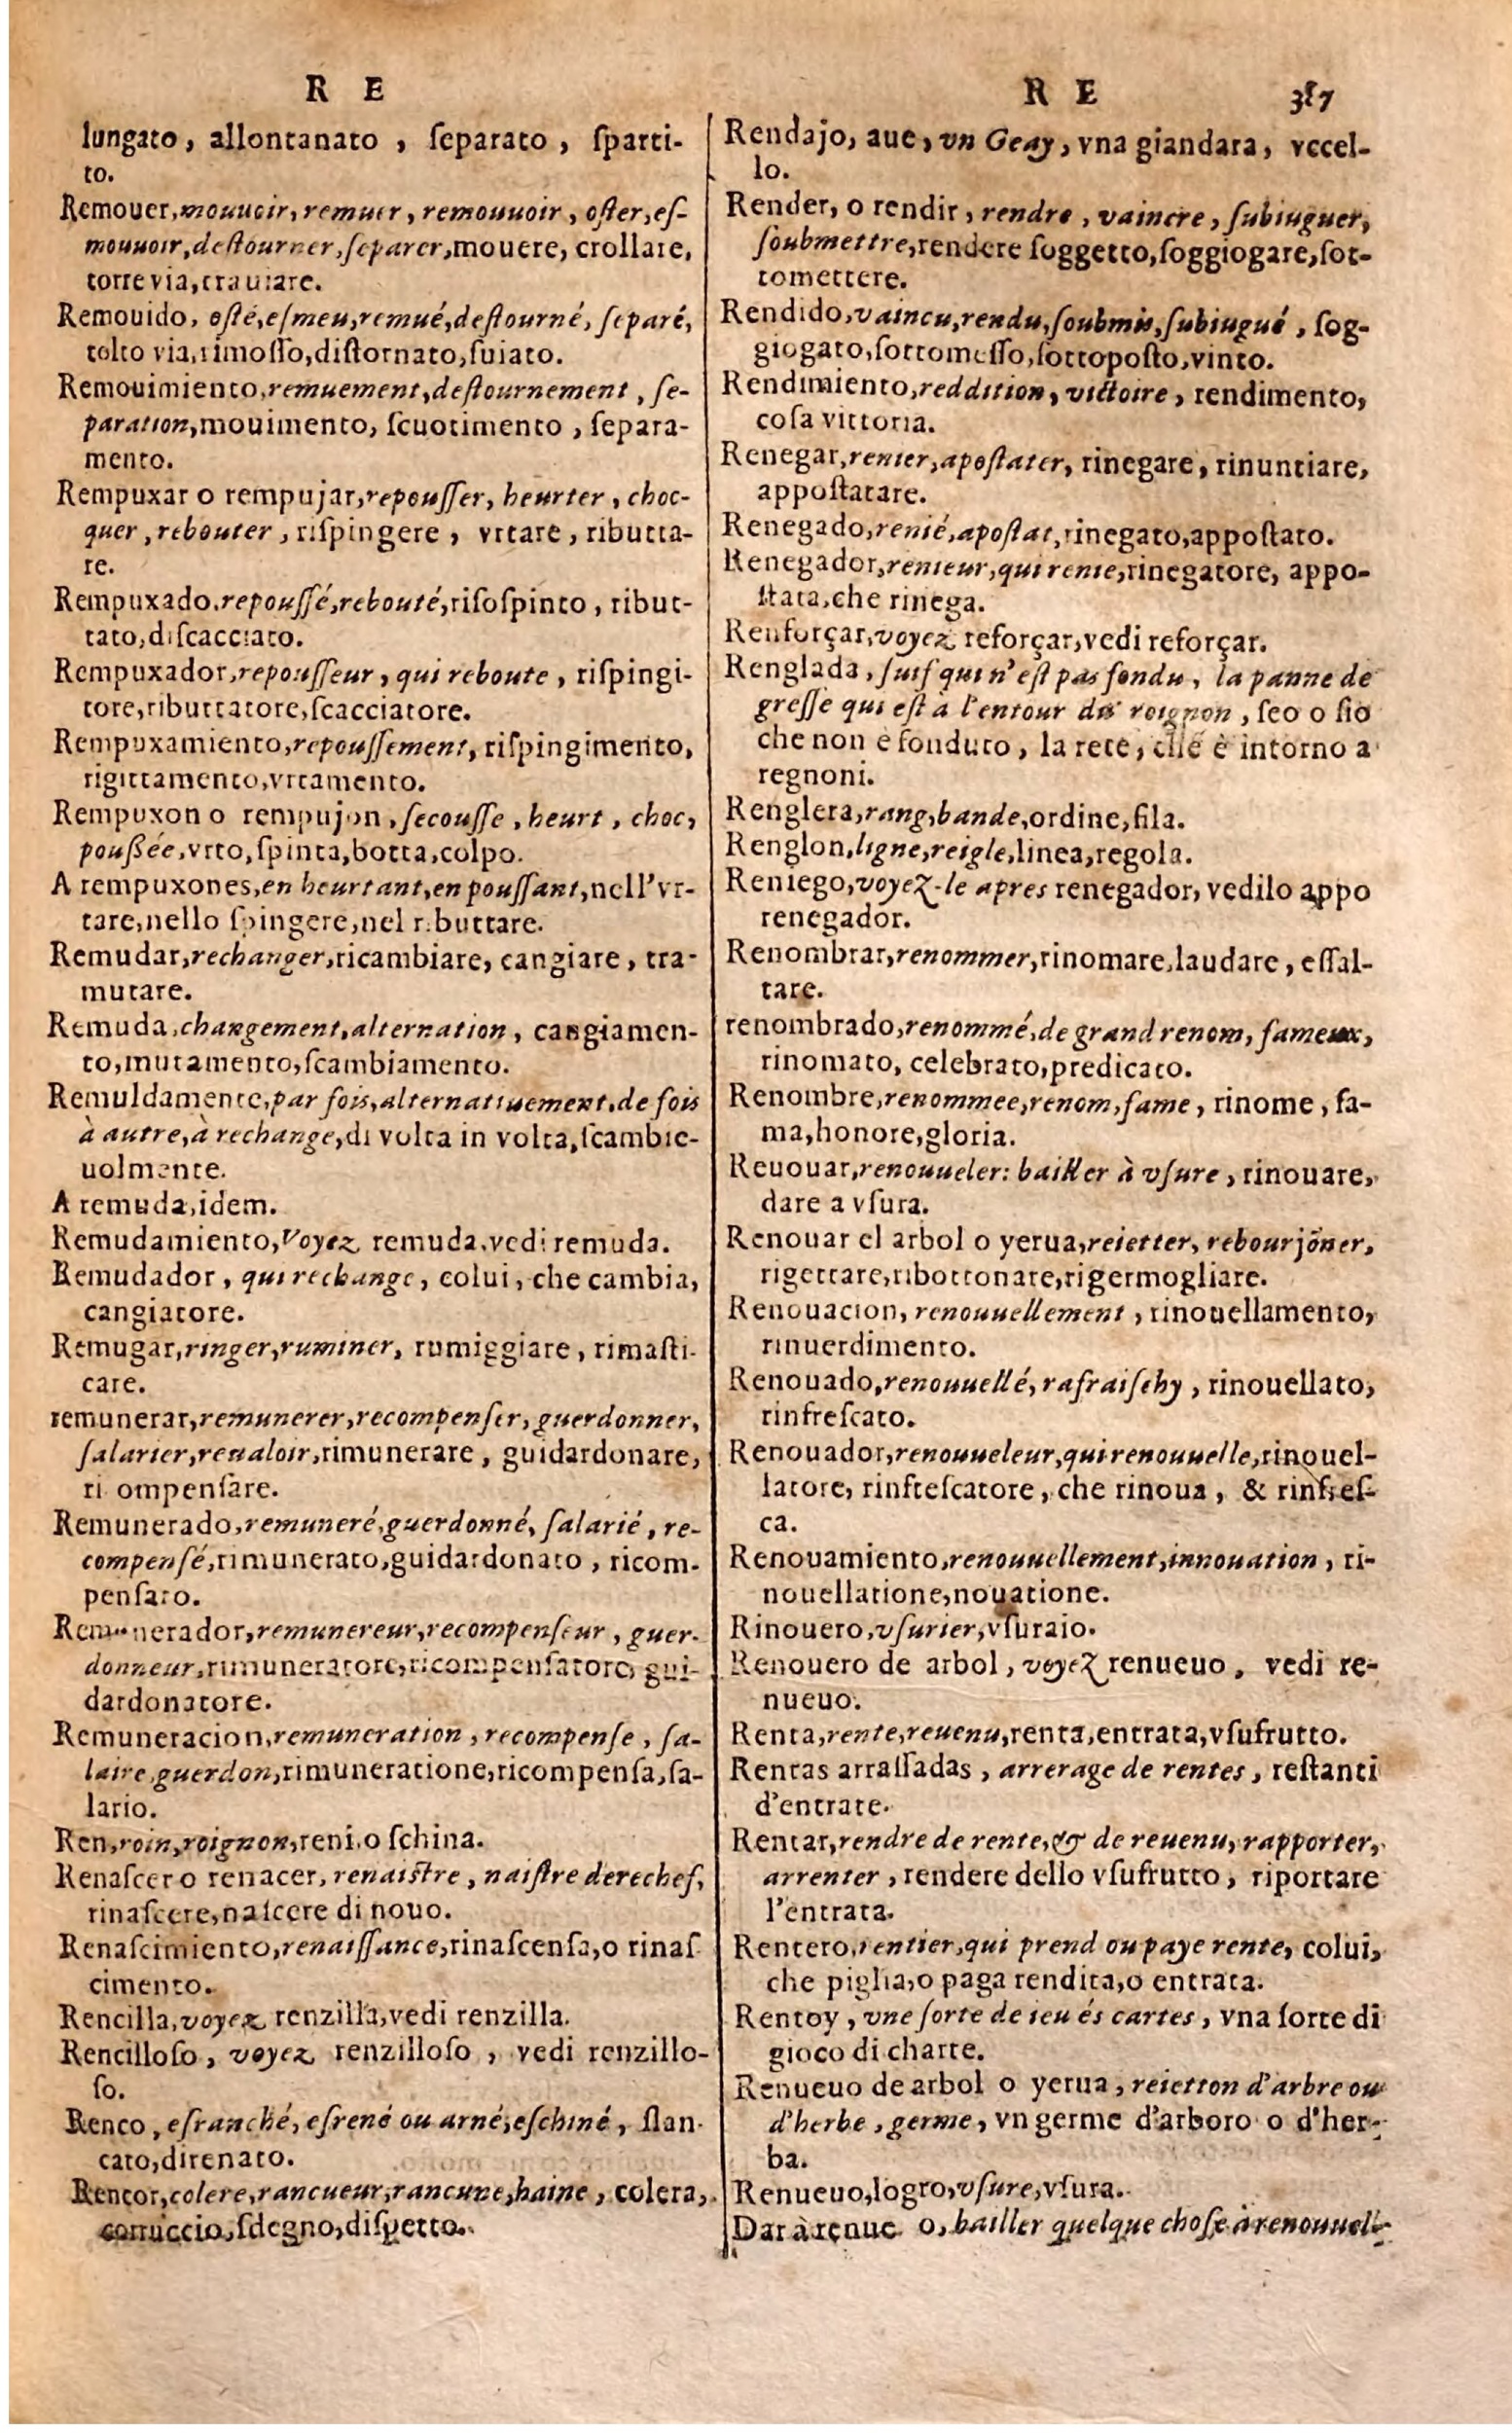 R E
lungato, allontanato, ſeparato, ſparti-
to.
Remouer, mouuoir, remuer, remouuoir, oſter, eſ-
mouuoir, deſtourner, ſeparer, mouere, crollare,
torre via, trauiare.
Remouido, oſté, eſmeu, remué, deſtourné, ſeparé,
tolto via, rimoſſo, diſtornato, ſuiato.
Remouimiento, remuement, deſtournement, ſe-
paration, mouimento, ſcuotimento, ſepara-
mento.
Rempuxar o rempujar, repouſſer, heurter, choc-
quer, rebouter, riſpingere, vrtare, ributta-
re.
Rempuxado, repouſſé, rebouté, riſoſpinto, ribut-
tato, diſcacciato.
Rempuxador, repouſſeur, qui reboute, riſpingi-
tore, ributtatore, ſcacciatore.
Rempuxamiento, repouſſement, riſpingimento,
rigittamento, vrtamento.
Rempuxon o rempujon, ſecouſſe, heurt, choc,
pouſsée, vrto, ſpinta, botta, colpo.
A rempuxones, en heurtant, en pouſſant, nell'vr-
tare, nello ſpingere, nel ributtare.
Remudar, rechanger, ricambiare, cangiare, tra-
mutare.
Remuda, changement, alternation, cangiamen-
to, mutamento, ſcambiamento.
Remuldamente, par fois, alternatiuement, de fois
à autre, à rechange, di volta in volta, ſcambie-
uolmente.
A remuda, idem.
Remudamiento, Voyez remuda, vedi remuda.
Remudador, qui rechange, colui, che cambia,
cangiatore.
Remugar, ringer, ruminer, rumiggiare, rimaſti-
care.
remunerar, remunerer, recompenſer, guerdonner,
ſalarier, reualoir, rimunerare, guidardonare,
ri ompenſare.
Remunerado, remuneré, guerdonné, ſalarié, re-
compenſé, rimunerato, guidardonato, ricom-
penſato.
Remunerador, remunereur, recompenſeur, guer-
donneur, rimuneratore, ricompenſatore, gui-
dardonatore.
Remuneracion, remuneration, recompenſe, ſa-
laire, guerdon, rimuneratione, ricompenſa, ſa-
lario.
Ren, roin, roignon, reni, o ſchina.
Renaſcer o renacer, renaiſtre, naiſtre derechef,
rinaſcere, naſcere di nouo.
Renaſcimiento, renaiſſance, rinaſcenſa, o rinaſ
cimento.
Rencilla, voyez renzilla, vedi renzilla.
Rencilloſo, voyez renzilloſo, vedi renzillo-
ſo.
Renco, efranché, efrené ou arné, eſchiné, ſlan-
cato, direnato.
Rencor, colere, rancueur, rancune, haine, colera,
corruccio, ſdegno, diſpetto.
R E 387
Rendajo, aue, vn Geay, vna giandara, vccel-
lo.
Render, o rendir, rendre, vaincre, ſubiuguer,
ſoubmettre, rendere ſoggetto, ſoggiogare, ſot-
tomettere.
Rendido, vaincu, rendu, ſoubmis, ſubiugué, ſog-
giogato, ſottomeſſo, ſottopoſto, vinto.
Rendimiento, reddition, victoire, rendimento,
coſa vittoria.
Renegar, renier, apoſtater, rinegare, rinuntiare,
appoſtatare.
Renegado, renié, apoſtat, rinegato, appoſtato.
Renegador, renieur, qui renie, rinegatore, appo-
ſtata, che rinega.
Renforçar, voyez reforçar, vedi reforçar.
Renglada, ſuif qui n'eſt pas fondu, la panne de
greſſe qui eſt à l'entour du roignon, ſeo o ſio
che non è fonduto, la rete, che è intorno a
regnoni.
Renglera, rang, bande, ordine, fila.
Renglon, ligne, reigle, linea, regola.
Reniego, voyez-le apres renegador, vedilo appo
renegador.
Renombrar, renommer, rinomare, laudare, eſſal-
tare.
renombrado, renommé, de grand renom, fameux,
rinomato, celebrato, predicato.
Renombre, renommee, renom, fame, rinome, fa-
ma, honore, gloria.
Reuouar, renouueler: bailler à vſure, rinouare,
dare a vſura.
Renouar el arbol o yerua, reietter, rebourjöner,
rigettare, ribottonare, rigermogliare.
Renouacion, renouuellement, rinouellamento,
rinuerdimento.
Renouado, renouuellé, rafraiſchy, rinouellato,
rinfreſcato.
Renouador, renouueleur, qui renouuelle, rinouel-
latore, rinfreſcatore, che rinoua, & rinfreſ-
ca.
Renouamiento, renouuellement, innouation, ri-
nouellatione, nouatione.
Rinouero, vſurier, vſuraio.
Renouero de arbol, voyez renueuo, vedi re-
nueuo.
Renta, rente, reuenu, renta, entrata, vſufrutto.
Rentas arraſſadas, arrerage de rentes, reſtanti
d'entrate.
Rentar, rendre de rente, & de reuenu, rapporter,
arrenter, rendere dello vſufrutto, riportare
l'entrata.
Rentero, rentier, qui prend ou paye rente, colui,
che piglia, o paga rendita, o entrata.
Rentoy, vne ſorte de ieu és cartes, vna ſorte di
gioco di charte.
Renueuo de arbol o yerua, reietton d'arbre ou
d'herbe, germe, vn germe d'arboro o d'her-
ba.
Renueuo, logro, vſure, vſura.
Dar à renue o, bailler quelque choſe à renouuell-